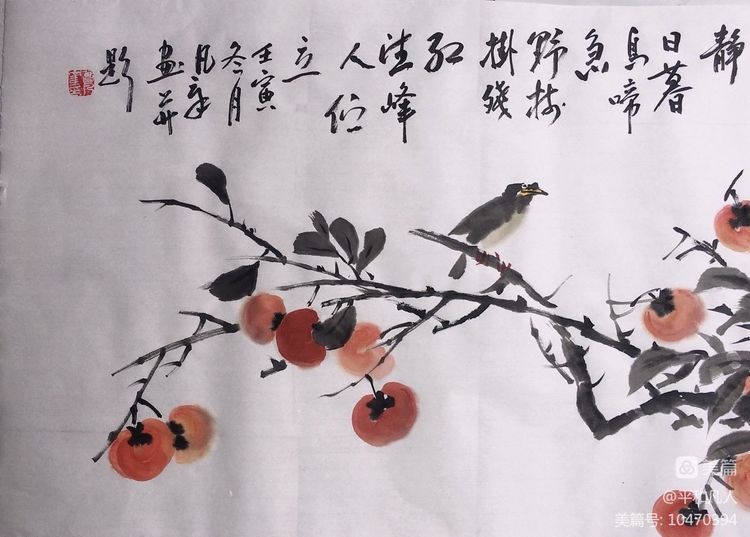 静
日暮
鸟啼
急
野树
掛残
红
望峰
人伫
立
壬寅
冬月
凡
画并
题
美篇
@平和凡人
美篇号: 10470994